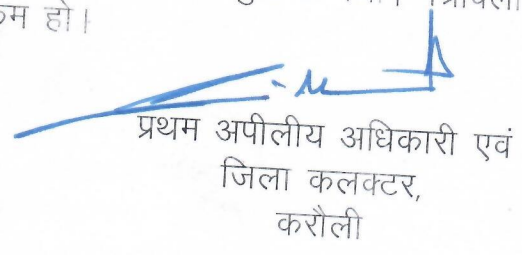 हो।
प्रथम अपीलीय अधिकारी एवं
जिला कलक्टर,
करौली